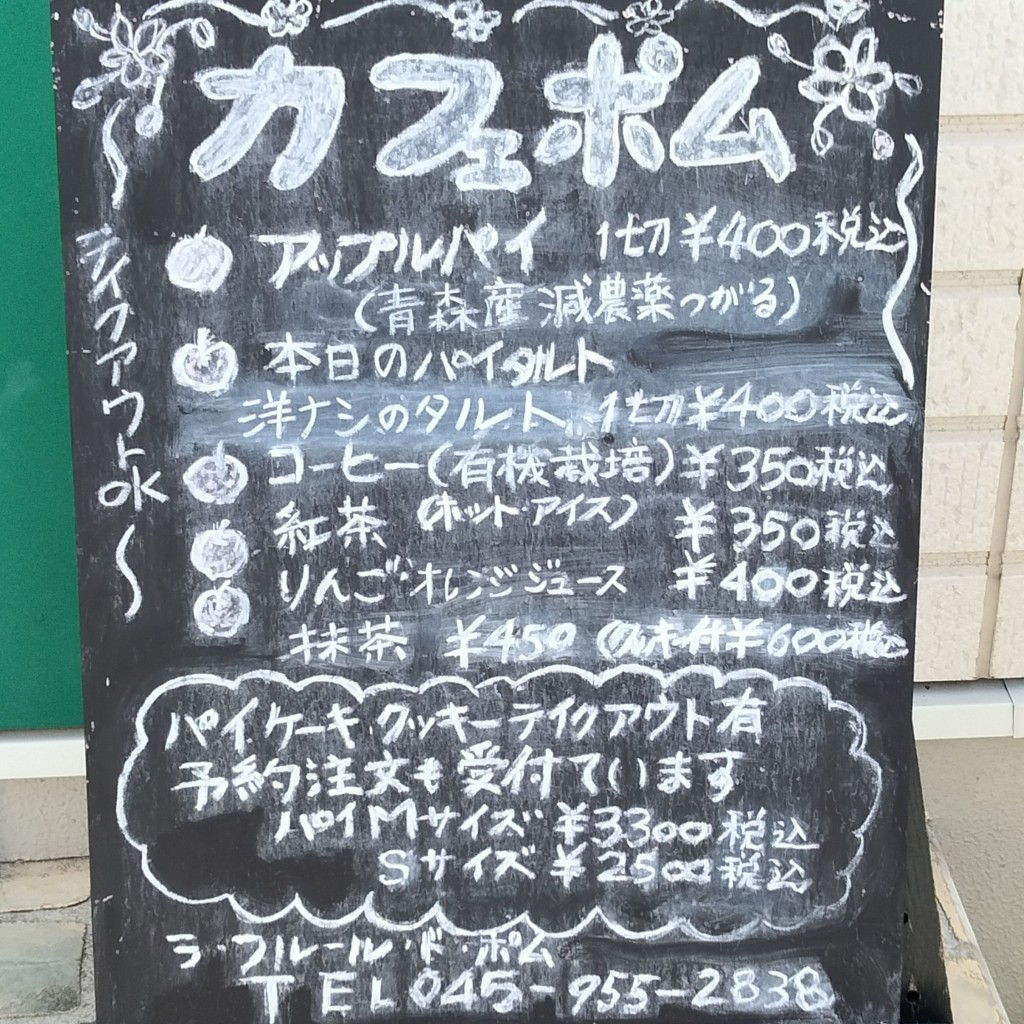 カフェポム
テイクアウトOK
アップルパイ 1切 ¥400税込
(青森産 減農薬つがる)
本日のパイタルト
洋ナシのタルト 1切 ¥400税込
コーヒー(有機栽培) ¥350税込
紅茶 (ホット・アイス) ¥350税込
りんご・オレンジジュース ¥400税込
抹茶 ¥450 (クッキー付¥600税込
パイケーキ・クッキーテイクアウト有
予約注文も受付ています
パイMサイズ ¥3300税込
Sサイズ ¥2500税込
ラ・フルール・ド・ポム
TEL 045-955-2838